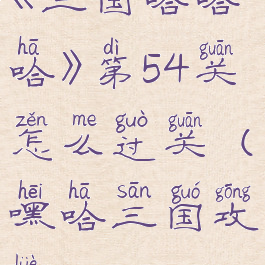 《三国哈哈
hā dì guān
哈》第54关
zěn me guò guān
怎么过关（
hēi hā sān guó gōng
嘿哈三国攻
lüè